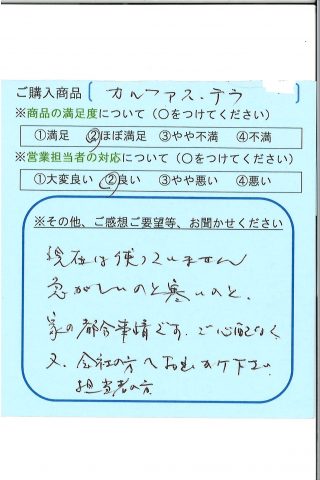 ご購入商品 カルファス・テラ
※商品の満足度について(○をつけてください)
①満足 ②ほぼ満足 ③やや不満 ④不満
※営業担当者の対応について(○をつけてください)
①大変良い ②良い ③やや悪い ④悪い
※その他、ご感想ご要望等、お聞かせください
現在は使っていません
急がしいのと寒いのと、
家の都合事情です。ご心配なく
又、会社の方へお出かけ下さい
担当者の方